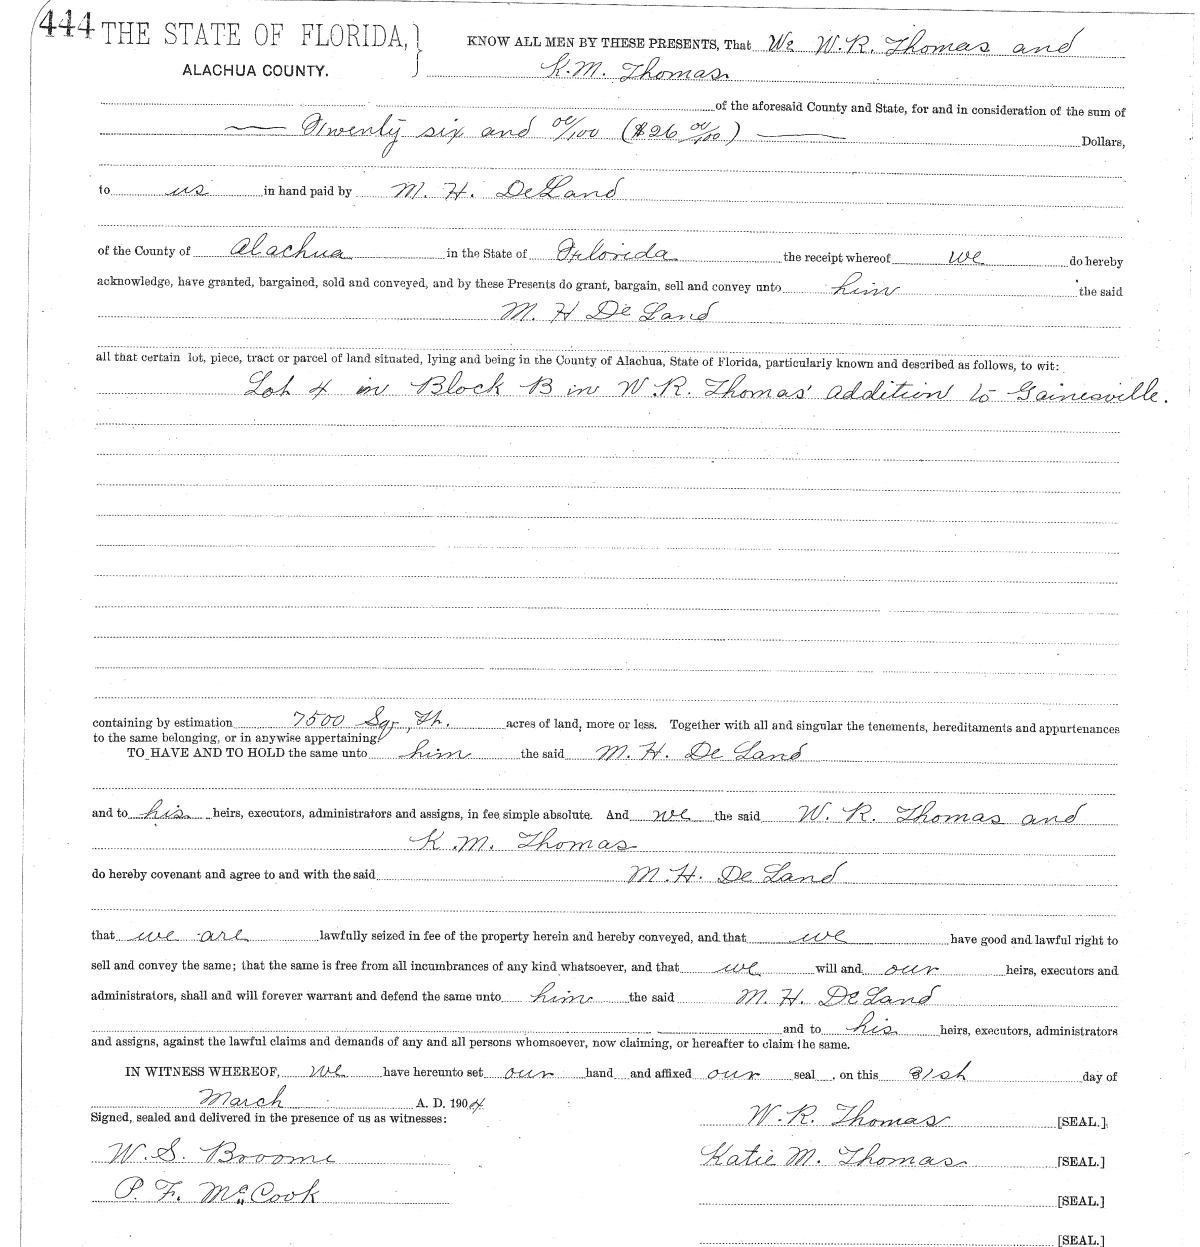 444 THE STATE OF FLORIDA,
ALACHUA COUNTY.
KNOW ALL MEN BY THESE PRESENTS, That We W. R. Thomas and
K. M. Thomas
of the aforesaid County and State, for and in consideration of the sum of
Twenty six and 00/100 ($26 00/100) Dollars,
to us in hand paid by M. H. DeLand
of the County of Alachua in the State of Florida the receipt whereof we do hereby
acknowledge, have granted, bargained, sold and conveyed, and by these Presents do grant, bargain, sell and convey unto him the said
M. H De Land
all that certain lot, piece, tract or parcel of land situated, lying and being in the County of Alachua, State of Florida, particularly known and described as follows, to wit:
Lot 4 in Block B in W. R. Thomas' addition to Gainesville.
containing by estimation 7500 Sqr Ft. acres of land, more or less. Together with all and singular the tenements, hereditaments and appurtenances
to the same belonging, or in anywise appertaining:
TO HAVE AND TO HOLD the same unto him the said M. H. De Land
and to his heirs, executors, administrators and assigns, in fee simple absolute. And we the said W. R. Thomas and
K. M. Thomas
do hereby covenant and agree to and with the said M. H. De Land
that we are lawfully seized in fee of the property herein and hereby conveyed, and that we have good and lawful right to
sell and convey the same; that the same is free from all incumbrances of any kind whatsoever, and that we will and our heirs, executors and
administrators, shall and will forever warrant and defend the same unto him the said M. H. DeLand
and to his heirs, executors, administrators
and assigns, against the lawful claims and demands of any and all persons whomsoever, now claiming, or hereafter to claim the same.
IN WITNESS WHEREOF, we have hereunto set our hand and affixed our seal on this 31st day of
March A. D. 1904
Signed, sealed and delivered in the presence of us as witnesses:
W. R. Thomas [SEAL.]
W. S. Broome Katie M. Thomas [SEAL.]
P. F. McCook [SEAL.]
[SEAL.]